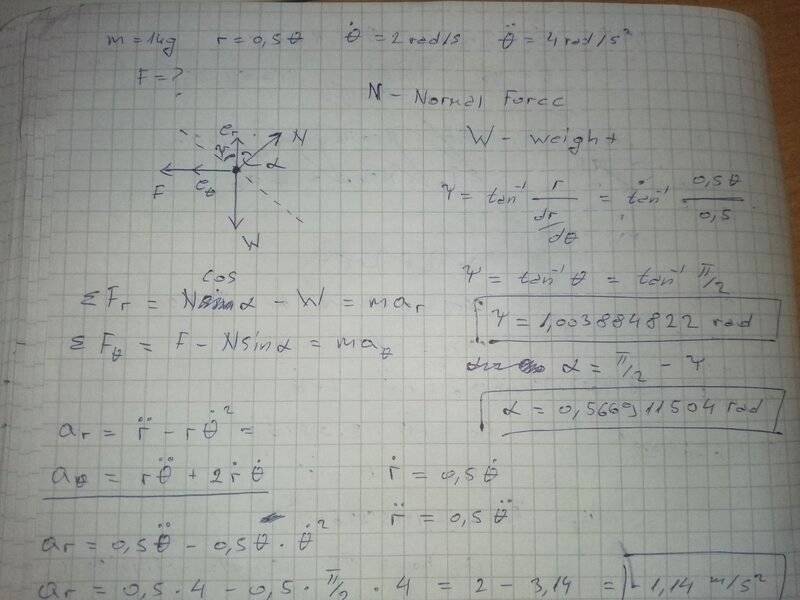 m = 14g r = 0,5θ θ̇ = 2 rad/s θ̈ = 4 rad/s²
F = ?
N - Normal Force
W - weight
er N
Ψ α
F eθ
W
Ψ = tan⁻¹ r/(dr/dθ) = tan⁻¹ 0,5θ/0,5
Ψ = tan⁻¹ θ = tan⁻¹ π/2
Ψ = 1,003884822 rad
α = π/2 - Ψ
α = 0,566911504 rad
cos
ΣFr = N α - W = mar
ΣFθ = F - Nsinα = maθ
ar = r̈ - rθ̇² =
aθ = rθ̈ + 2ṙθ̇
ṙ = 0,5θ̇
r̈ = 0,5θ̈
ar = 0,5θ̈ - 0,5θ · θ̇²
ar = 0,5 · 4 - 0,5 · π/2 · 4 = 2 - 3,14 = -1,14 m/s²